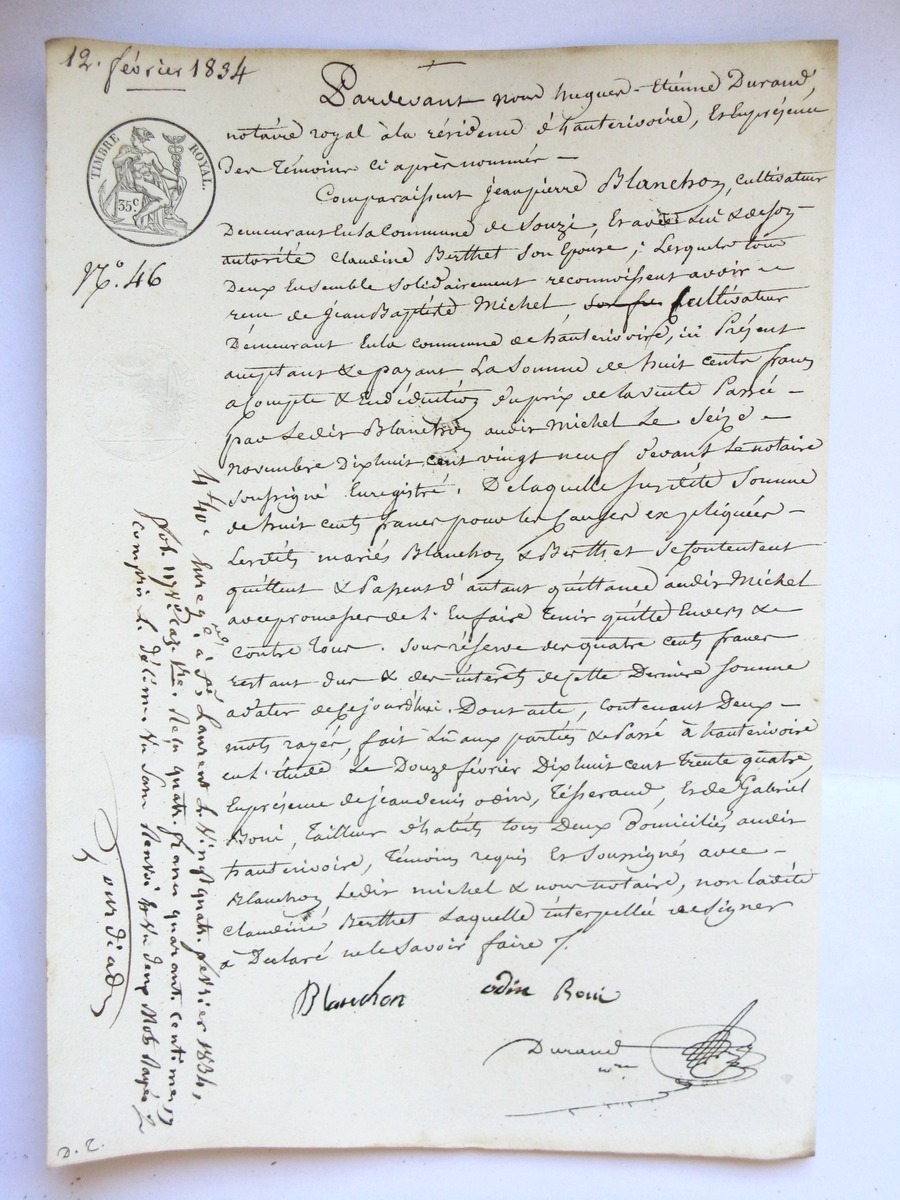 12. février 1834
Pardevant nous hugues-Etiénne Durand,
notaire royal à la résidence d'hauterivoire, Et En présence
Des Témoins ci après nommés —
TIMBRE ROYAL.
35 c
Comparaissent Jean pierre Blanchon, cultivateur
Demeurant En la Commune de Souzi, Et avec Lui & de son
autorité Claudine Berthet Son Epouse ; Lesquels tous
N.o 46
Deux Ensemble Solidairement reconnoissent avoir —
reçu de Jean Baptiste Michel Cultivateur
Démeurant En la commune de hauterivoire, ici Présent
acceptant & payant La Somme de huit cents francs
a Compte & En déduction du prix de la vente Passée —
par Ledit Blanchon audit Michel Le Seize —
novembre Dix huit cent vingt neuf devant Le notaire
Soussigné Enregistré. De laquelle Susditte Somme
de huit cents francs pour les Causes expliquées —
Lesdits mariés Blanchon & Berthet Se Contentent
quittent & Passent d'autant quittance audit Michel
avec promesse de L'En faire Tenir quitte Envers &
contre Tous. Sous réserve des quatre cents francs
restant dus & des intérêts de cette Dernière Somme
a dater de ce jourd'hui. Dont acte, contenant Deux —
mots rayés, fait Lu aux parties & Passé à hauterivoire
en L'étude Le Douze février Dix huit cent trente quatre,
En présence de Jean denis odin, Tisserand, Et de Gabriel
Boui, Tailleur d'habits tous Deux Domiciliés audit
hauterivoire, Témoins requis Et Soussignés avec —
Blanchon Ledit michel & nous notaire, non ladite
claudine Berthet Laquelle interpellée de signer
à Declaré ne le Savoir faire /.
Blanchon odin Boui
Durand
nre
440 Enreg.é à St Laurent le vingt quatre février 1834,
fol. 117 Case Reçu quatre francs quarante centimes,
compris le décime
D. T.